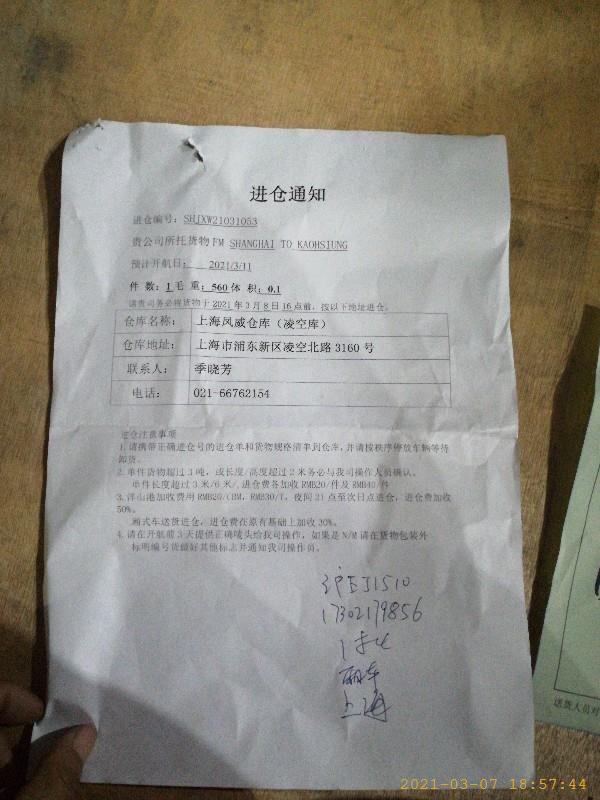 进仓通知
进仓编号: SHJXW21031053
贵公司所托货物FM SHANGHAI TO KAOHSIUNG
预计开航日: 2021/3/11
件 数: 1 毛 重: 560 体 积: 0.1
请贵司务必将货物于2021年3月8日16点前，按以下地址进仓。
仓库名称: 上海凤威仓库（凌空库）
仓库地址: 上海市浦东新区凌空北路3160号
联系人: 季晓芳
电话: 021-66762154
进仓注意事项
1.请携带正确进仓号的进仓单和货物规格清单到仓库，并请按秩序停放车辆等待
卸货。
2.单件货物超过3吨，或长度/高度超过2米务必与我司操作人员确认。
单件长度超过3米/6米/，进仓费各加收RMB20/件及RMB40/件
3.洋山港加收费用RMB20/CBM, RMB30/T，夜间21点至次日点进仓，进仓费加收
50%。
厢式车送货进仓，进仓费在原有基础上加收30%。
4.请在开航前3天提供正确唛头给我司操作，如果是N/M请在货物包装外
标明编号货做好其他标志并通知我司操作员。
沪EJ1510
17302179856
上海
送货人员对
2021-03-07 18:57:44